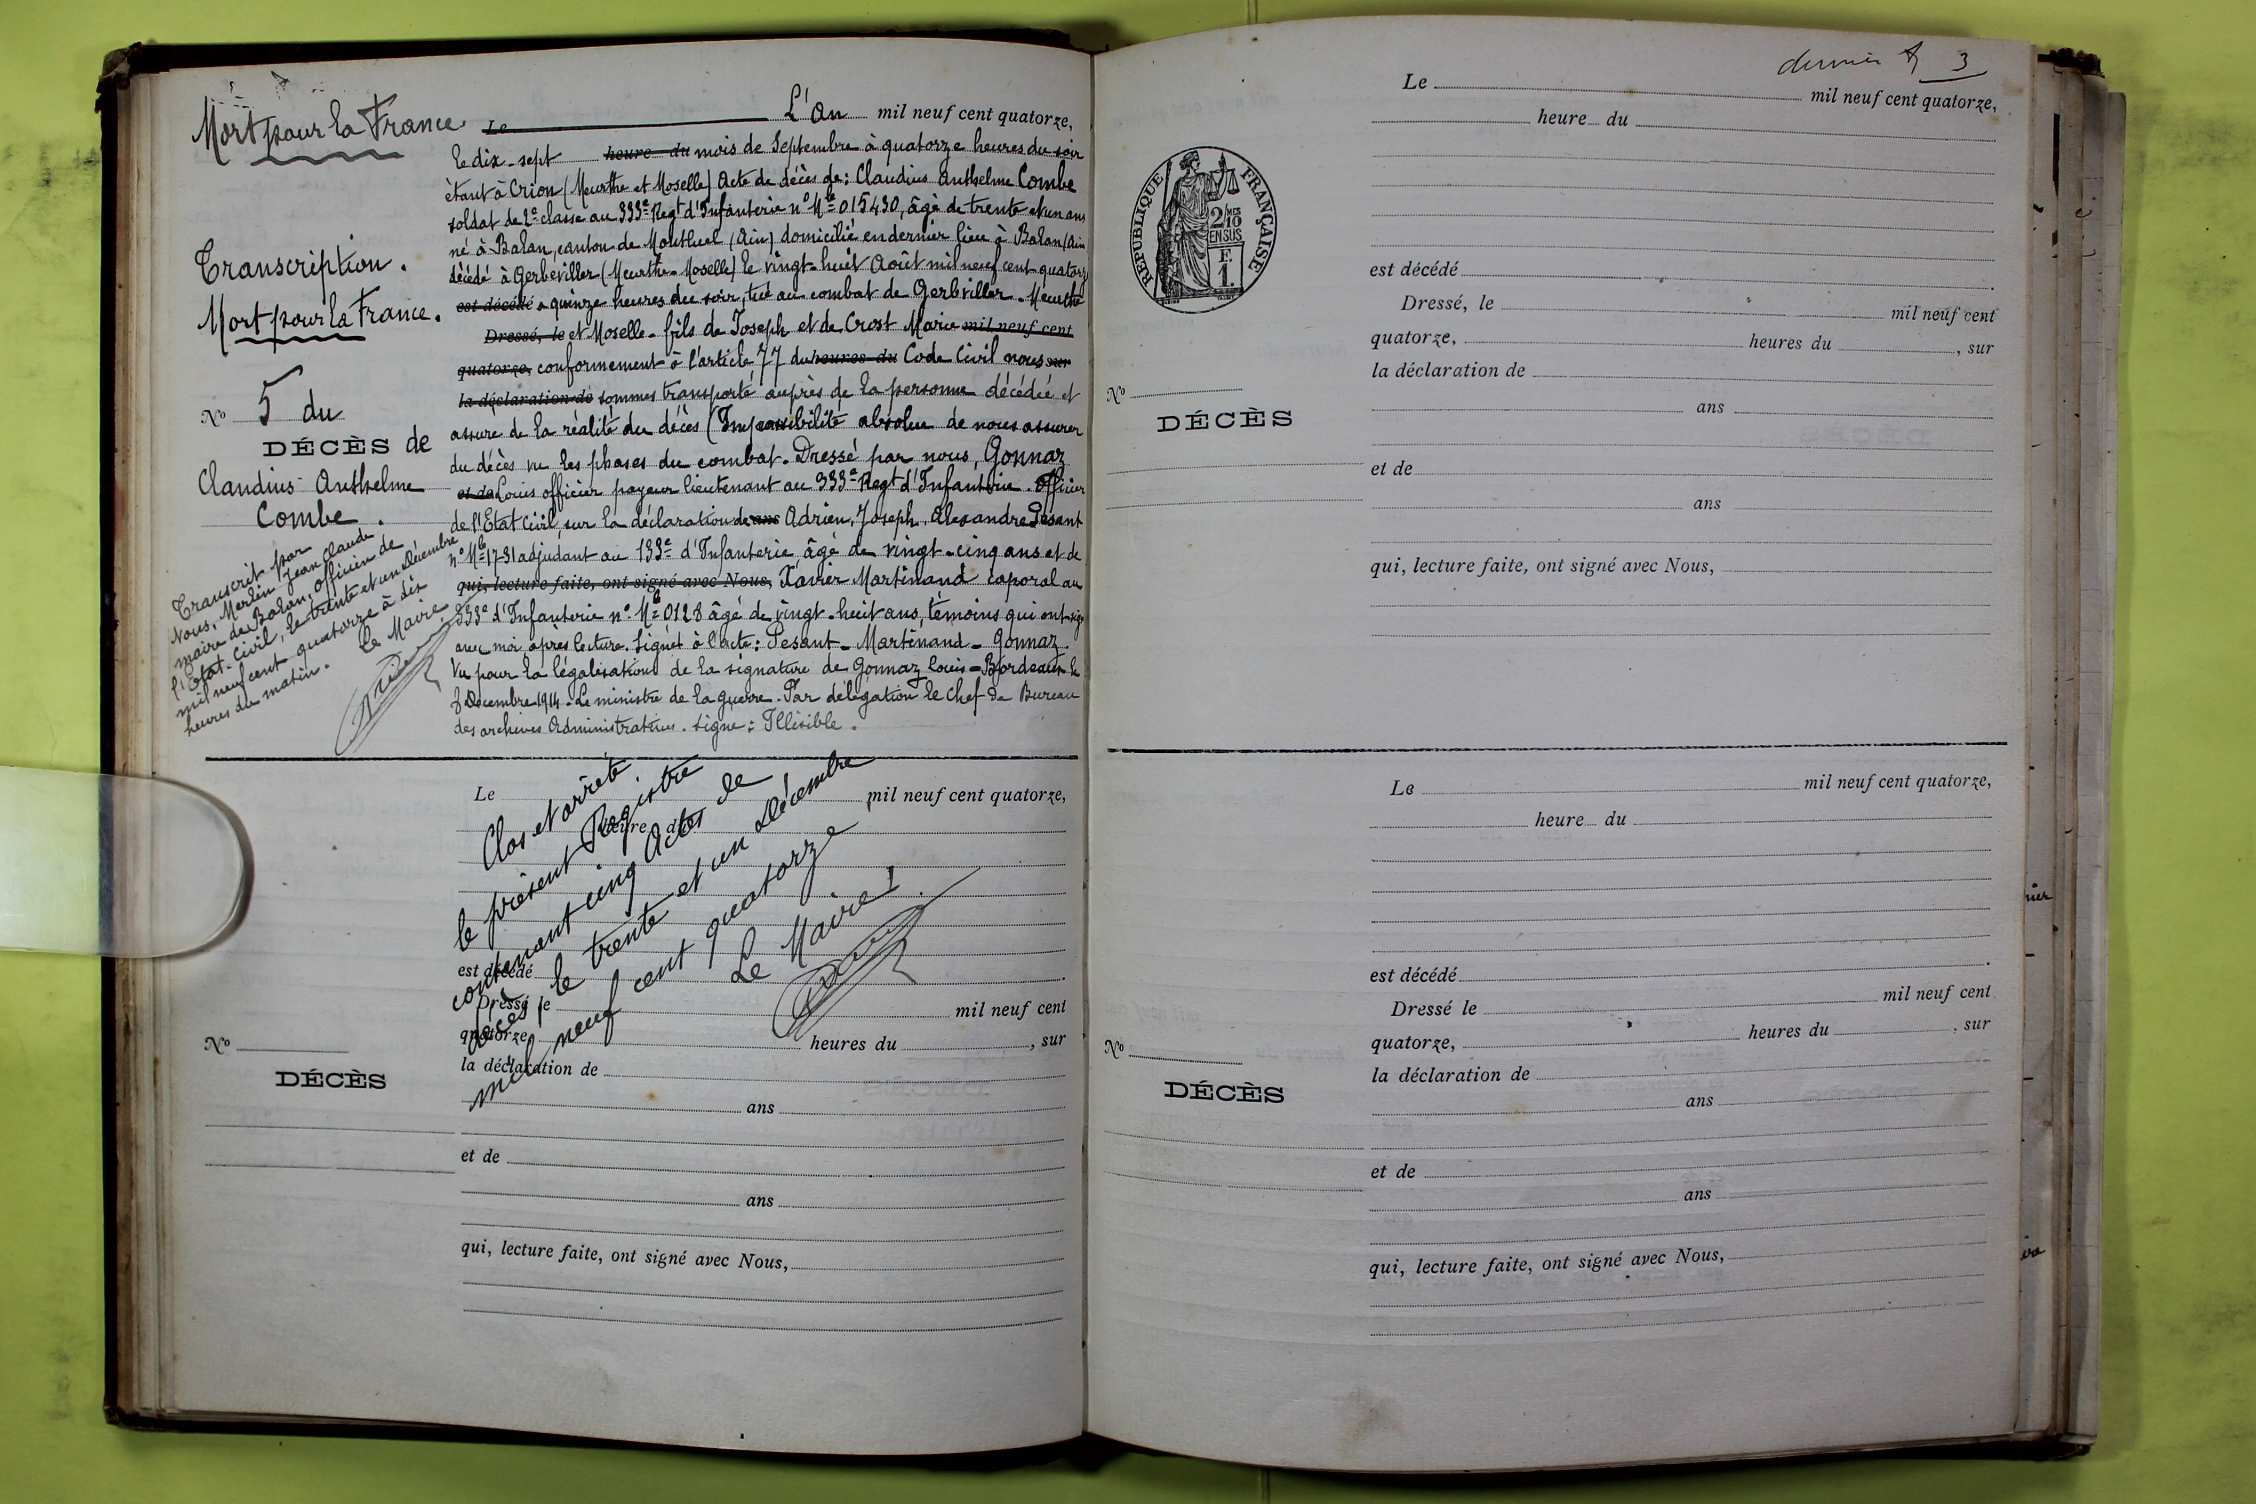 Mort pour la France
Transcription.
Mort pour la France.
No 5 du
DÉCÈS de
Claudius Anthelme
Combe.
Transcrit par
Nous, Merlin Jean Claude
maire de Balan, officier de
l'Etat-civil, le trente et un Décembre
mil neuf cent quatorze à dix
heures du matin. Le Maire
Le L'An mil neuf cent quatorze,
le dix-sept heure du mois de Septembre à quatorze heures du soir
ètant à Crion (Meurthe et Moselle) Acte de décès de: Claudius Anthelme Combe
soldat de 2e classe au 333e Regt d'Infanterie no Mle 015430, âgé de trente et un ans
né à Balan, canton de Montluel (Ain) domicilié en dernier lieu à Balan (Ain
décédé à Gerbeviller (Meurthe-Moselle) le vingt-huit Août mil neuf cent quatorz
est décédé à quinze heures du soir, tué au combat de Gerbviller. Meurthe
Dressé, le et Moselle - fils de Joseph et de Crost Marie mil neuf cent
quatorze, conformement à l'article 77 du heures du Code Civil nous sur
la déclaration de sommes transporté auprès de la personne décédée et
assure de la réalité du décès (Impossibilité absolue de nous assurer
du décès vu les phases du combat. Dressé par nous, Gonnaz
et de Louis officier payeur lieutenant au 333e Regt d'Infanterie. Officier
de l'Etat Civil, sur la déclaration de ans Adrien, Joseph, Alexandre Pesant
no Mle 1731 adjudant au 133e d'Infanterie âgé de vingt-cinq ans et de
qui, lecture faite, ont signé avec Nous, Xavier Martinand caporal au
333e d'Infanterie no Mle 0128 âgé de vingt-huit ans, témoins qui ont sig
avec moi après lecture. Signét à l'acte: Pesant - Martinand - Gonnaz.
Vu pour la légalisation de la signature de Gonnaz Louis - Bordeaux le
8 Décembre 1914. Le ministre de la guerre. Par délégation le Chef de Bureau
des archives Administratives. Signe: Illisible.
Le mil neuf cent quatorze,
heure du
Clos et arrêté
le présent Registre
contenant cinq Actes de
décès le trente et un Décembre
mil neuf cent quatorze
Le Maire
est décédé
Dressé le mil neuf cent
quatorze, heures du , sur
la déclaration de
ans
No
DÉCÈS
et de
ans
qui, lecture faite, ont signé avec Nous,
dernier 3
Le mil neuf cent quatorze,
heure du
RÉPUBLIQUE FRANÇAISE
2/10MES
EN SUS
F.
1.
est décédé
Dressé, le mil neuf cent
quatorze, heures du , sur
la déclaration de
No
ans
DÉCÈS
et de
ans
qui, lecture faite, ont signé avec Nous,
Le mil neuf cent quatorze,
heure du
est décédé
Dressé le mil neuf cent
quatorze, heures du , sur
No
la déclaration de
DÉCÈS
ans
et de
ans
qui, lecture faite, ont signé avec Nous,